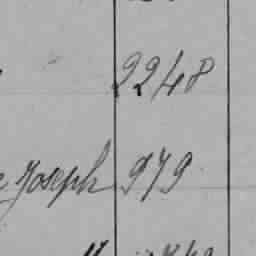 2248
Joseph 979